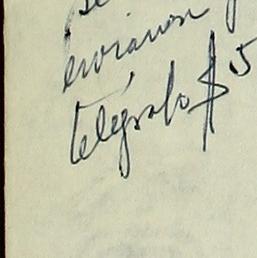 se
enviaron
telégrafo $ 5